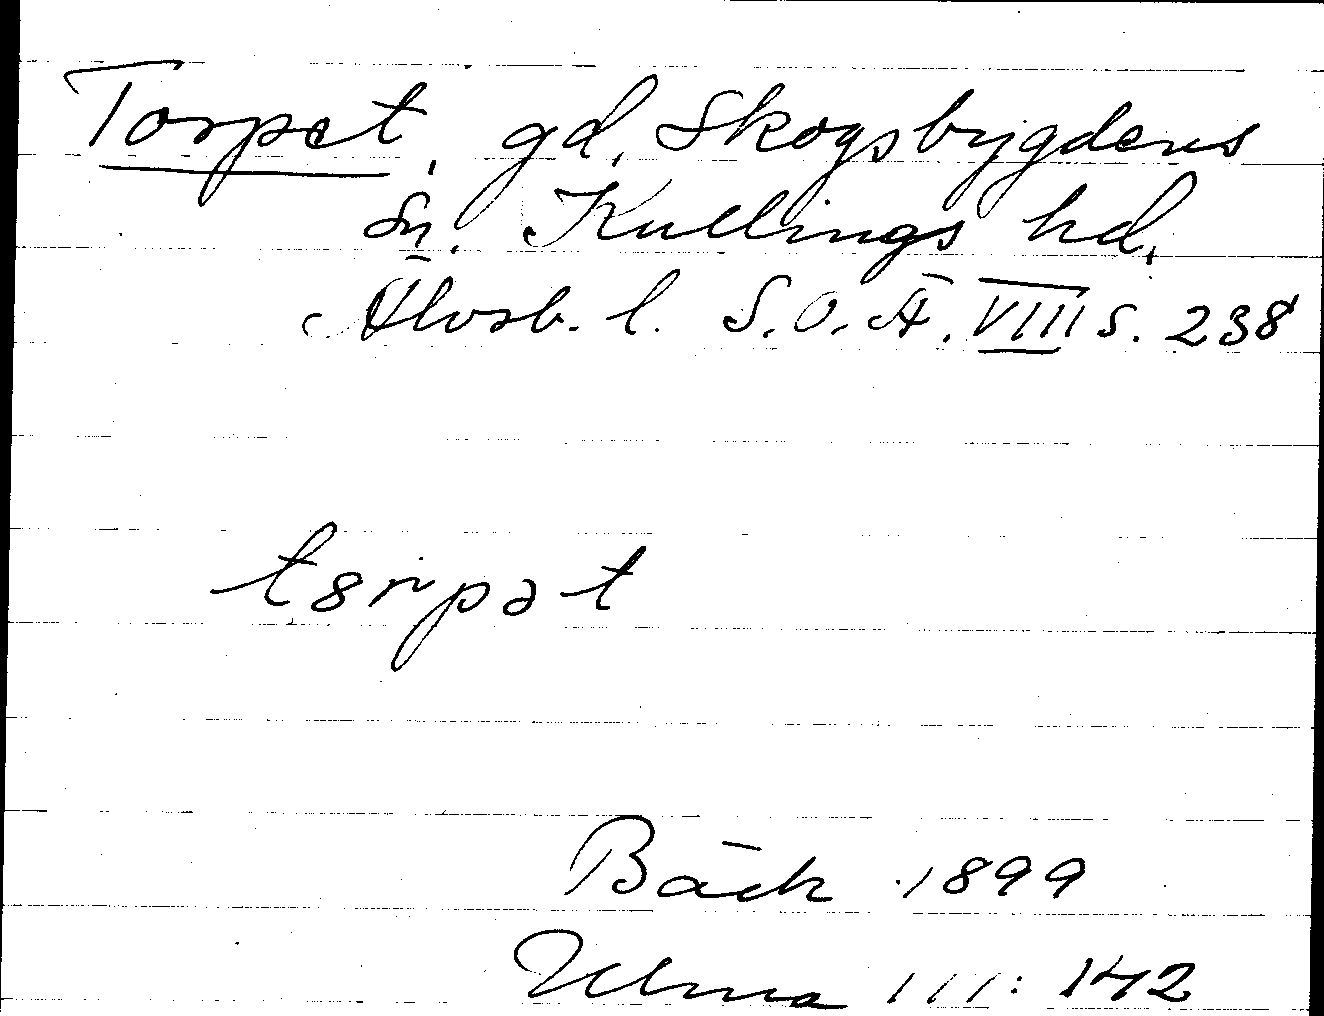 Torpet, gd, Skogsbygdens
Sn. Kullings hd,
Älvsb. l. S.O.Ä. VIII s. 238
t8rpət
Bäck 1899
Ulma 111: 142